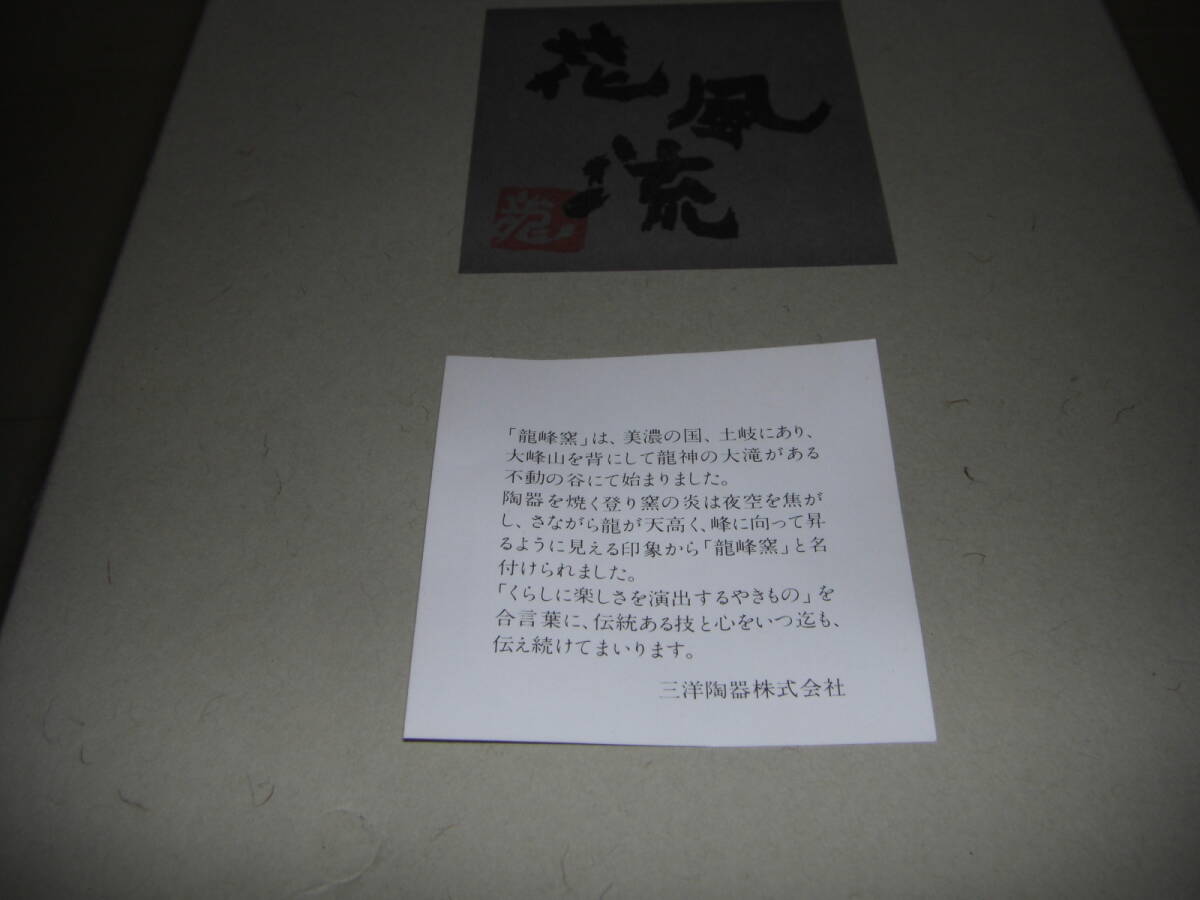 花風流
龍
「龍峰窯」は、美濃の国、土岐にあり、
大峰山を背にして龍神の大滝がある
不動の谷にて始まりました。
陶器を焼く登り窯の炎は夜空を焦が
し、さながら龍が天高く、峰に向って昇
るように見える印象から「龍峰窯」と名
付けられました。
「くらしに楽しさを演出するやきもの」を
合言葉に、伝統ある技と心をいつ迄も、
伝え続けてまいります。
三洋陶器株式会社